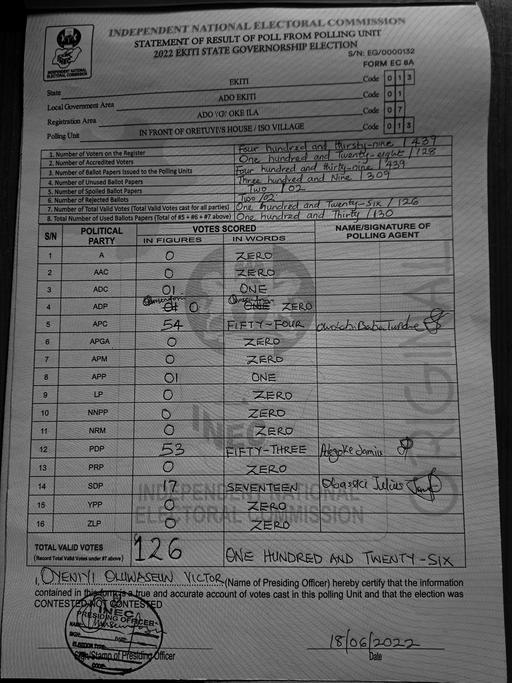 INDEPENDENT NATIONAL ELECTORAL COMMISSION
STATEMENT OF RESULT OF POLL FROM POLLING UNIT
2022 EKITI STATE GOVERNORSHIP ELECTION
S/N: EG/0000132
FORM EC 8A
State EKITI Code 0 1 3
Local Government Area ADO EKITI Code 0 1
Registration Area ADO 'G' OKE ILA Code 0 7
Polling Unit IN FRONT OF ORETUYI'S HOUSE / ISO VILLAGE Code 0 1 3
1. Number of Voters on the Register Four hundred and thirty-nine / 439
2. Number of Accredited Voters One hundred and Twenty-eight / 128
3. Number of Ballot Papers Issued to the Polling Units Four hundred and thirty-nine / 439
4. Number of Unused Ballot Papers Three hundred and Nine / 309
5. Number of Spoiled Ballot Papers Two / 02
6. Number of Rejected Ballots Two / 02
7. Number of Total Valid Votes (Total Valid Votes cast for all parties) One hundred and Twenty-Six / 126
8. Total Number of Used Ballots Papers (Total of #5 + #6 + #7 above) One hundred and Thirty / 130
S/N POLITICAL PARTY VOTES SCORED NAME/SIGNATURE OF POLLING AGENT
IN FIGURES IN WORDS
1 A 0 ZERO
2 AAC 0 ZERO
3 ADC 01 ONE
4 ADP 01 0 ONE ZERO
5 APC 54 FIFTY-FOUR
6 APGA 0 ZERO
7 APM 0 ZERO
8 APP 01 ONE
9 LP 0 ZERO
10 NNPP 0 ZERO
11 NRM 0 ZERO
12 PDP 53 FIFTY-THREE
13 PRP 0 ZERO
14 SDP 17 SEVENTEEN
15 YPP 0 ZERO
16 ZLP 0 ZERO
INEC
INDEPENDENT NATIONAL
ELECTORAL COMMISSION
ORIGINAL
TOTAL VALID VOTES
(Record Total Valid Votes under #7 above)
126 ONE HUNDRED AND TWENTY-SIX
I, OYENIYI OLUWASEUN VICTOR (Name of Presiding Officer) hereby certify that the information
contained in this form is a true and accurate account of votes cast in this polling Unit and that the election was
CONTESTED/NOT CONTESTED
INEC
PRESIDING OFFICER
18/06/2022
Sign/Stamp of Presiding Officer Date